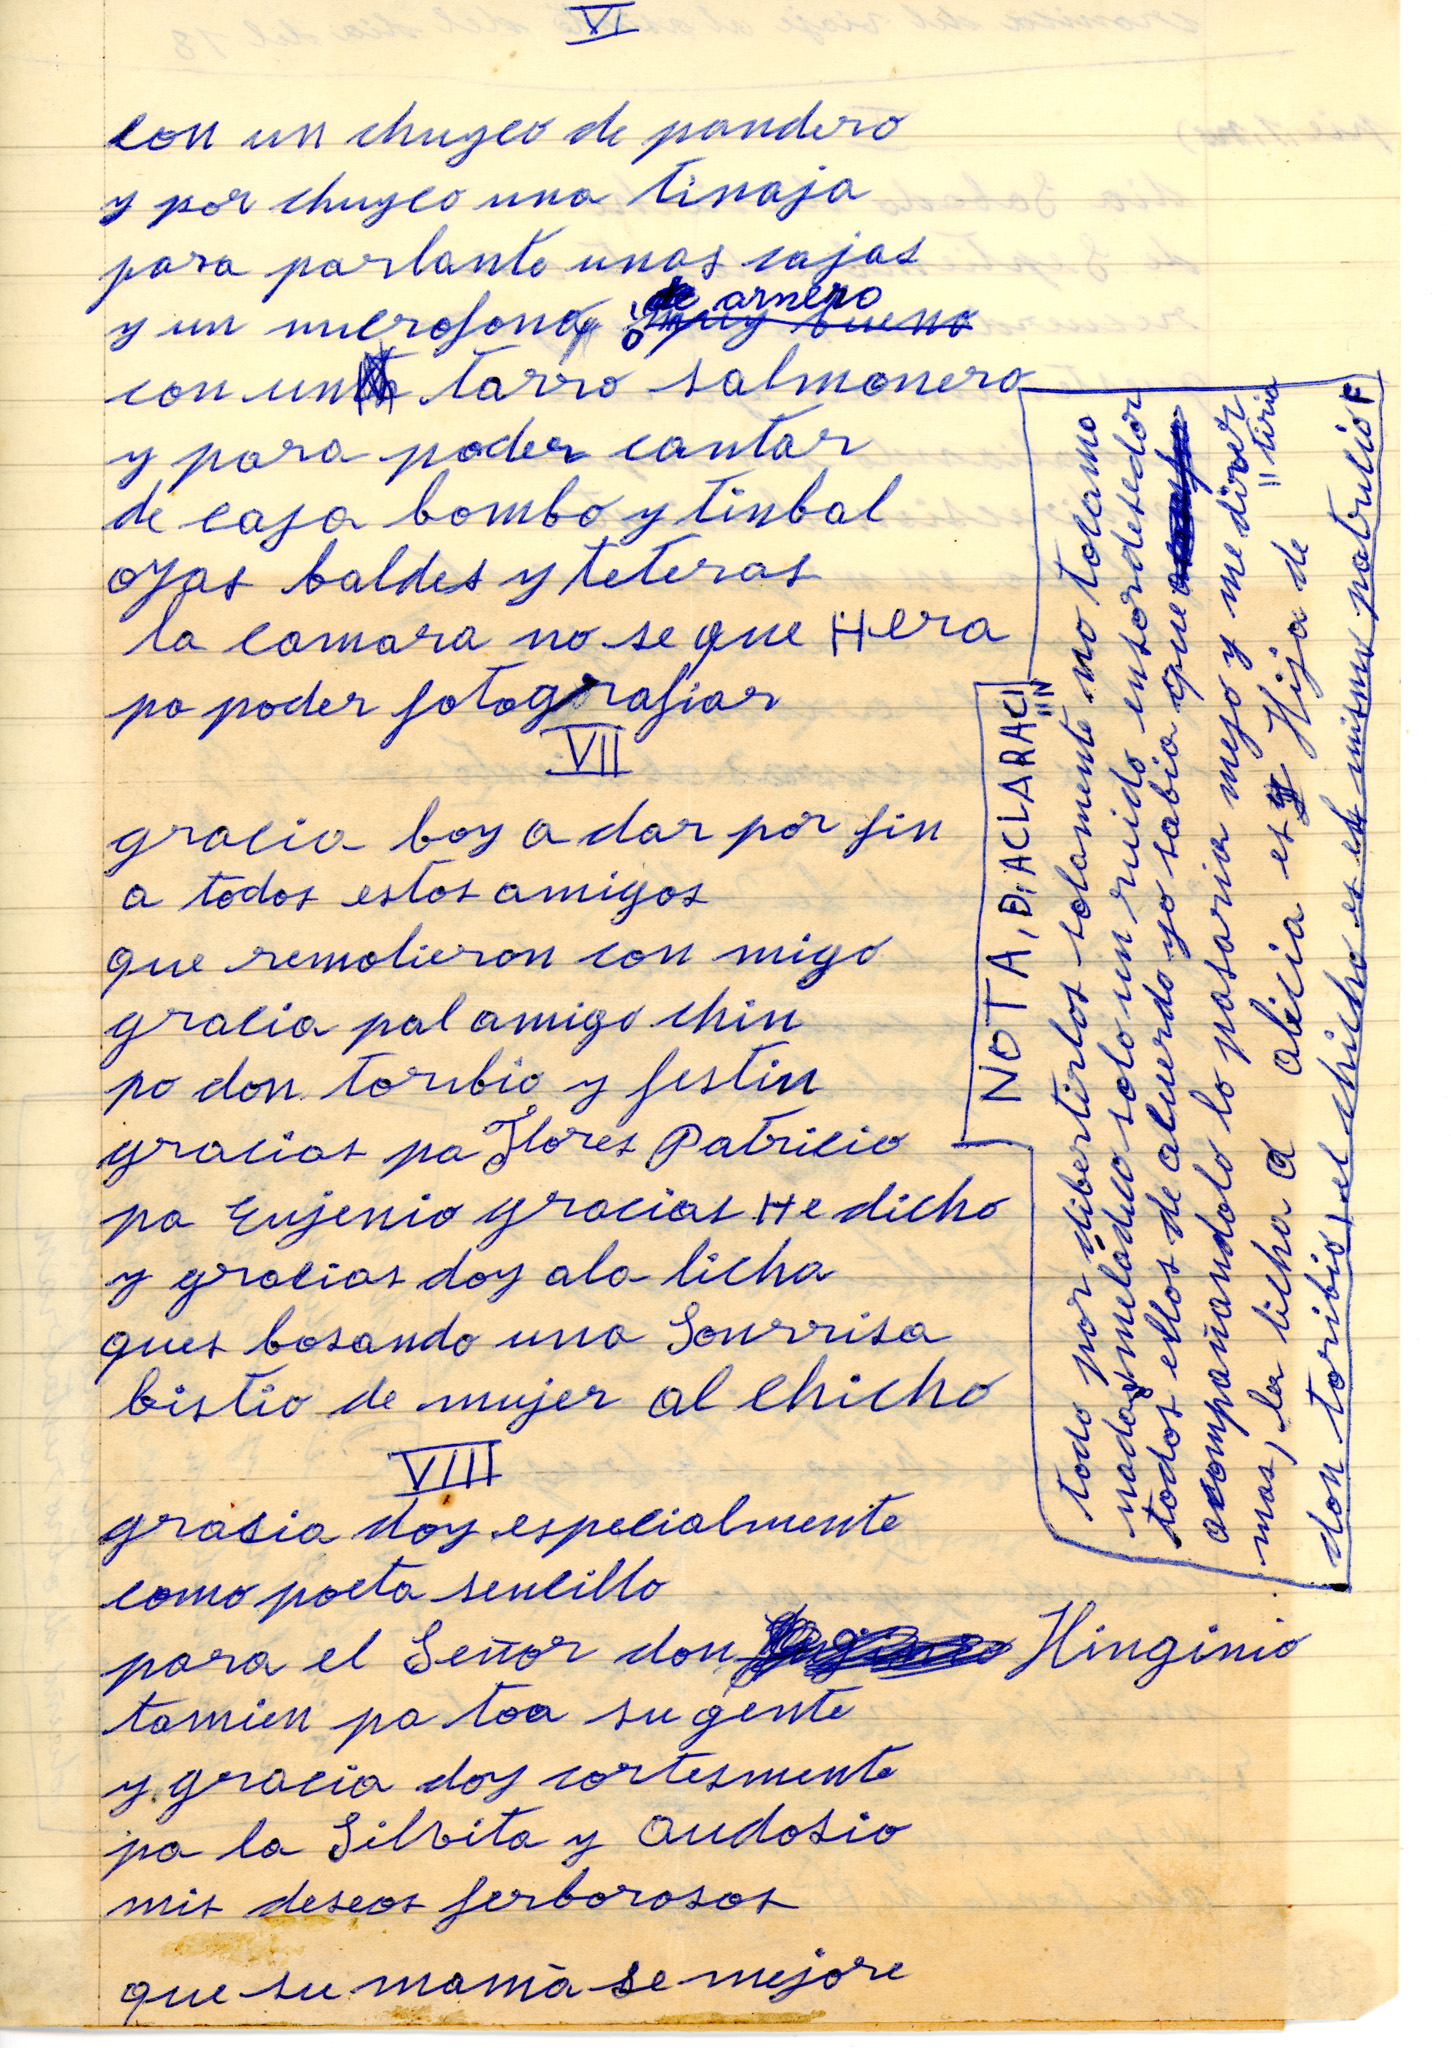 VI
con un chuyco de pandero
y por chuyco una tinaja
para parlante unas cajas
y un microfono de arnero
con un tarro salmonero
y para poder cantar
de caja bombo y tinbal
oyas baldes y teteras
la camara no se que Hera
pa poder fotografiar
VII
gracia boy a dar por fin
a todos estos amigos
que remolieron con migo
gracia pal amigo chin
pa don toribio y festin
gracias pa Flores Patricio
pa Eujenio gracias He dicho
y gracias doy a la licha
ques bosando una Sonrrisa
bistio de mujer al Chicho
VIII
gracia doy especialmente
como poeta sencillo
para el Señor don Hinginio
tamien pa toa su gente
y gracia doy cortesmente
pa la Silbita y Audosio
mis deseos ferborosos
que su mamá se mejore
NOTA, D, ACLARACI
"N
todo por dibertirlos solamente no tocamo
nada melodico solo un ruido ensordesedor
todos ellos de acuerdo yo sabia que
acompañandolo lo pasaria mejo y me diver
"tiria
mas, la licha a alicia es Hija de
don toribio, el chicho es el mismo patricio F